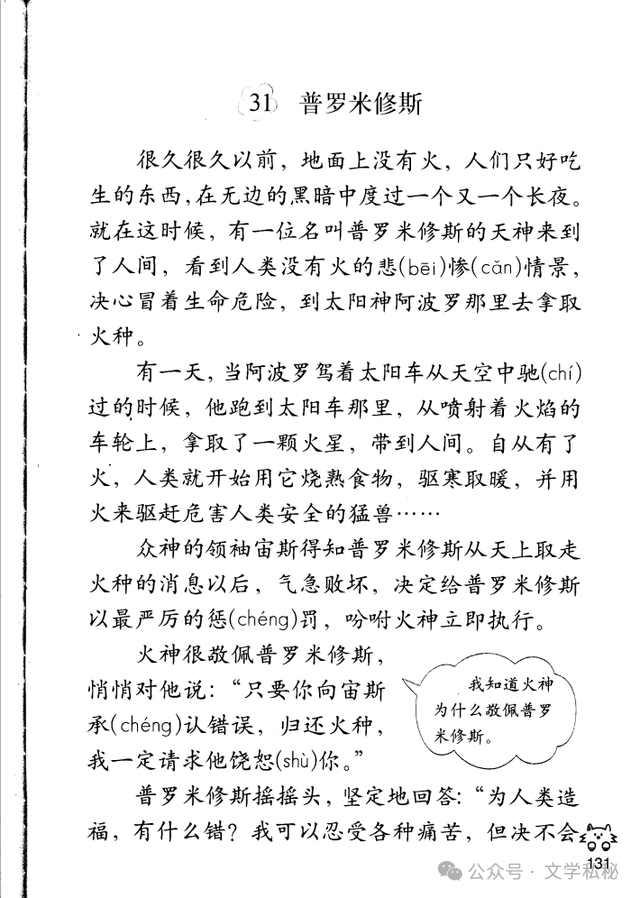 31 普罗米修斯
很久很久以前，地面上没有火，人们只好吃
生的东西，在无边的黑暗中度过一个又一个长夜。
就在这时候，有一位名叫普罗米修斯的天神来到
了人间，看到人类没有火的悲(bēi)惨(cǎn)情景，
决心冒着生命危险，到太阳神阿波罗那里去拿取
火种。
有一天，当阿波罗驾着太阳车从天空中驰(chí)
过的时候，他跑到太阳车那里，从喷射着火焰的
车轮上，拿取了一颗火星，带到人间。自从有了
火，人类就开始用它烧熟食物，驱寒取暖，并用
火来驱赶危害人类安全的猛兽……
众神的领袖宙斯得知普罗米修斯从天上取走
火种的消息以后，气急败坏，决定给普罗米修斯
以最严厉的惩(chéng)罚，吩咐火神立即执行。
火神很敬佩普罗米修斯，
悄悄对他说：“只要你向宙斯
承(chéng)认错误，归还火种，
我一定请求他饶恕(shù)你。”
我知道火神
为什么敬佩普罗
米修斯。
普罗米修斯摇摇头，坚定地回答：“为人类造
福，有什么错？我可以忍受各种痛苦，但决不会
131
公众号·文学私秘